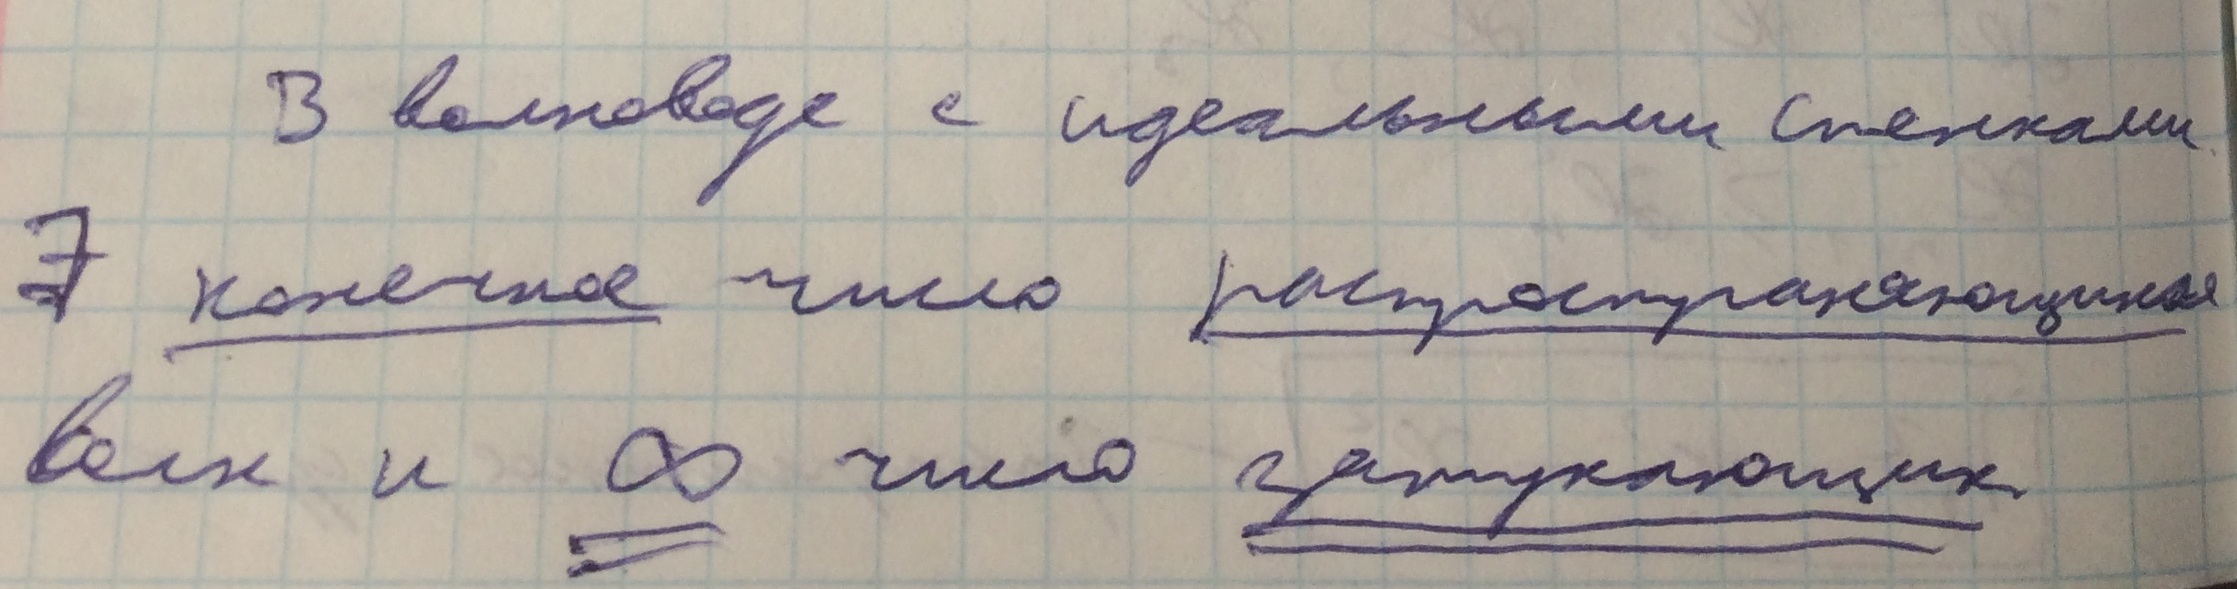 В волноводе с идеальными стенками
∃ конечное число распространяющихся
волн и ∞ число затухающих